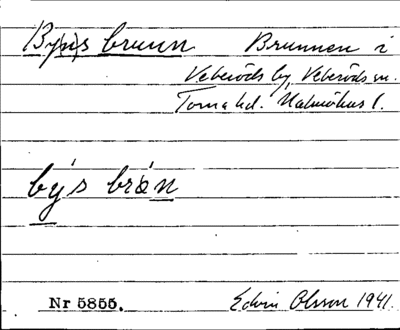 Bys brunn Brunnen i
Veberöds by, Veberöds sn.
Torna hd. Malmöhus l.
býs brǿn
Nr 5855. Edvin Olsson 1941.